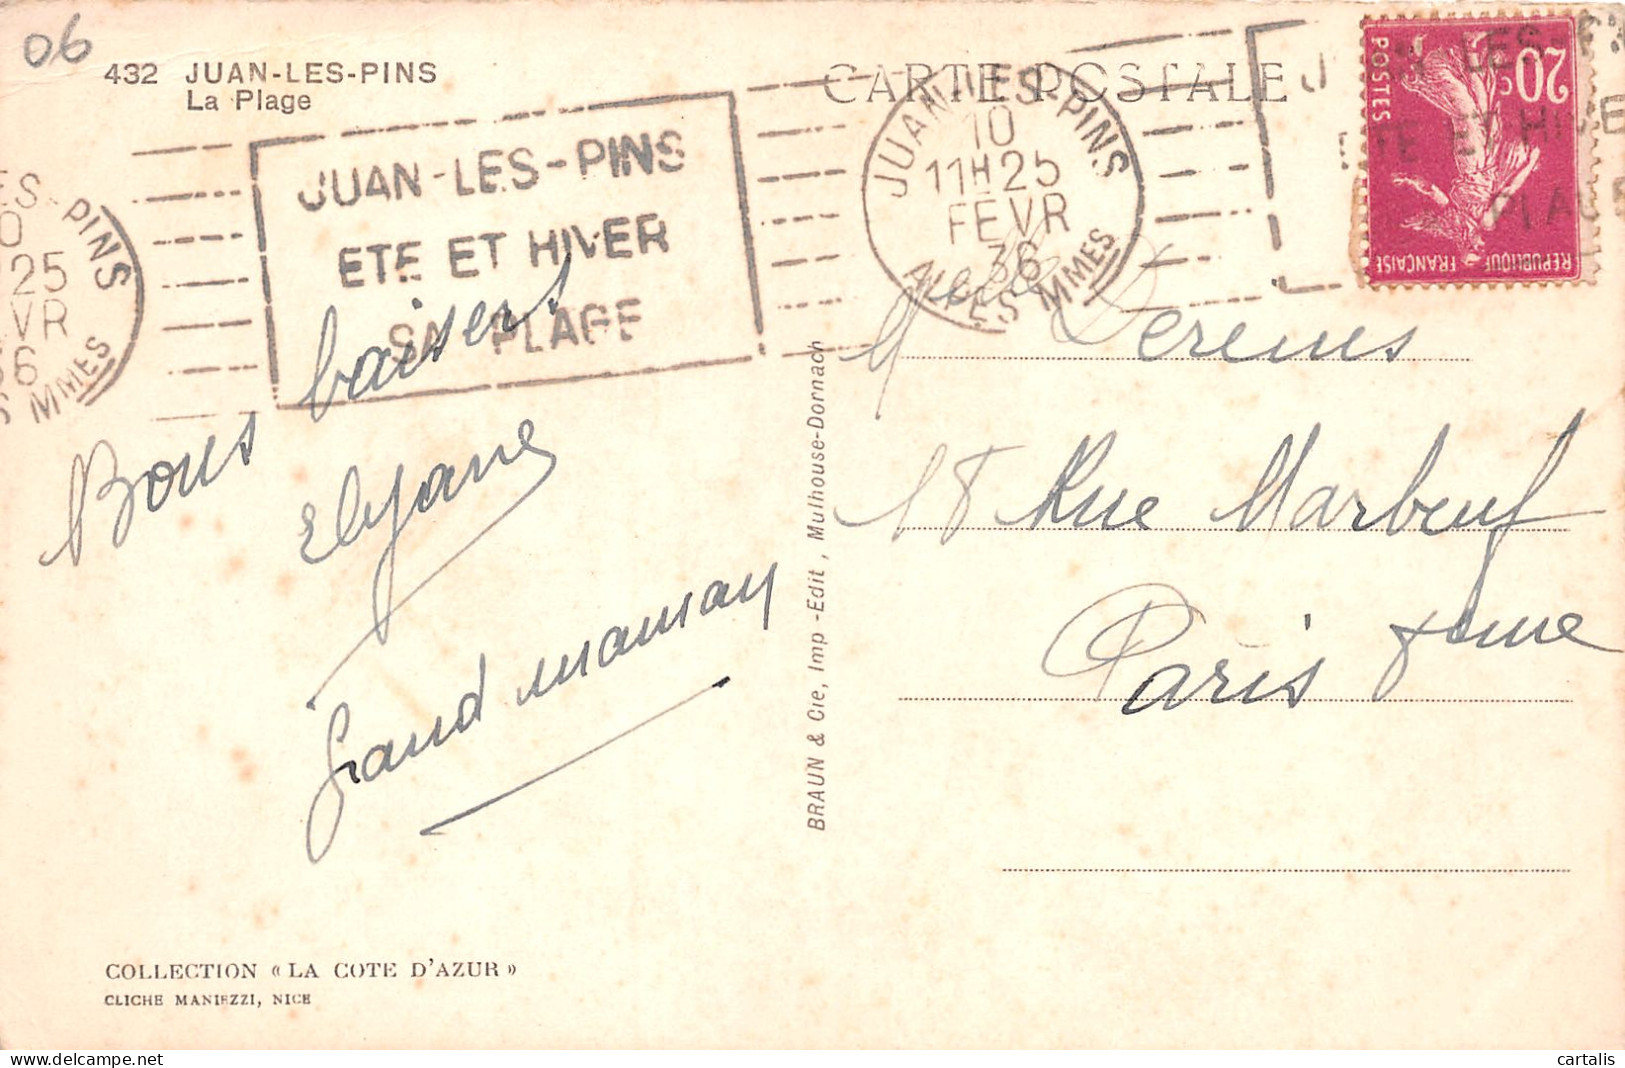 06
432 JUAN-LES-PINS
La Plage
CARTE POSTALE
JUAN-LES-PINS
ETE ET HIVER
SA PLAGE
JUAN-LES-PINS
10
11H25
FEVR
36
ALPES MMES
20c
POSTES
REPUBLIQUE FRANCAISE
Bons baisers
Elyane
Grand maman
Melle
18 Rue Marbeuf
Paris 8eme
BRAUN & Cie, Imp -Edit , Mulhouse-Dornach
COLLECTION « LA COTE D'AZUR »
CLICHE MANIEZZI, NICE
cartalis